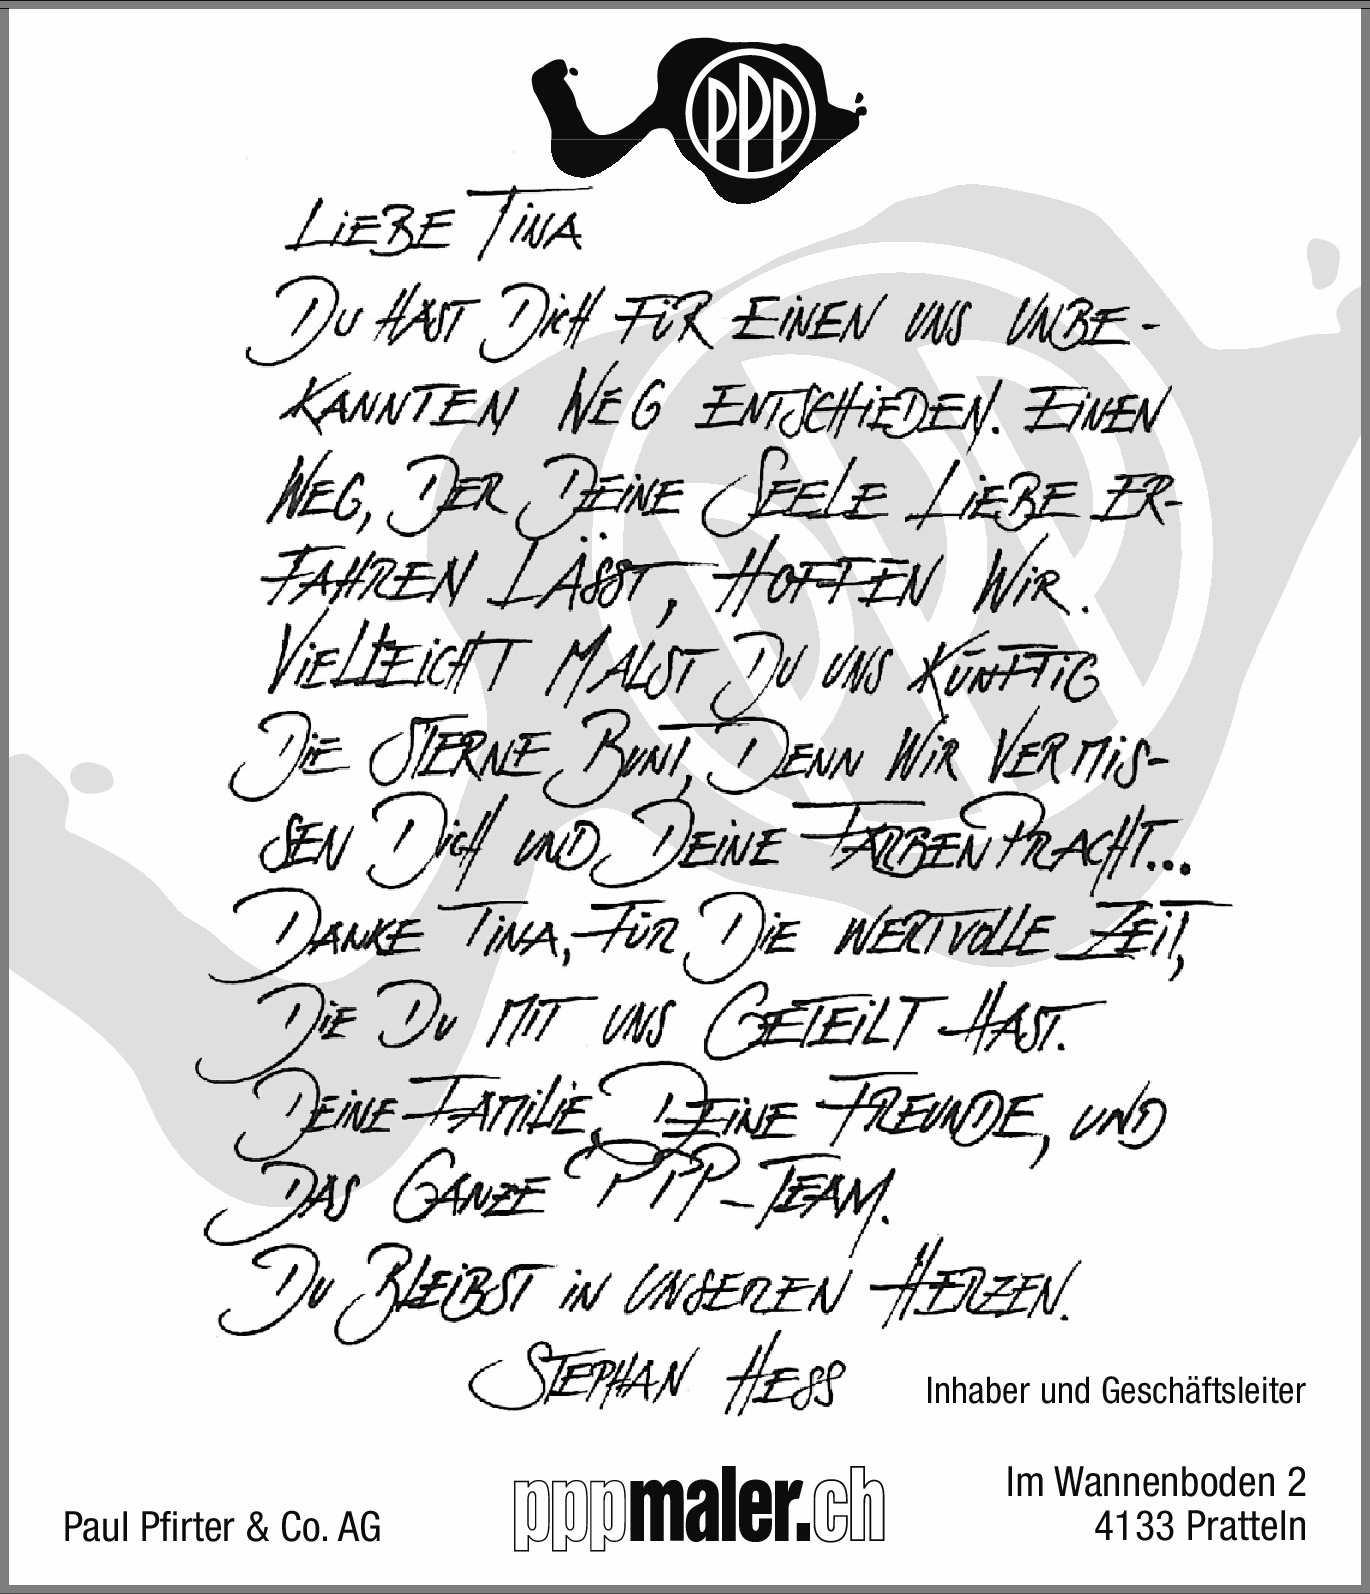 PPP
Liebe Tina
Du hast Dich für einen uns unbe-
kannten Weg entschieden. Einen
Weg, der Deine Seele Liebe er-
fahren lässt, hoffen wir.
Vielleicht malst Du uns künftig
die Sterne bunt, denn wir vermis-
sen Dich und Deine Farbenpracht...
Danke Tina, für die wertvolle Zeit,
die Du mit uns geteilt hast.
Deine Familie, Deine Freunde, und
das ganze PPP-Team.
Du bleibst in unseren Herzen.
Stephan Hess
Inhaber und Geschäftsleiter
Paul Pfirter & Co. AG
pppmaler.ch
Im Wannenboden 2
4133 Pratteln